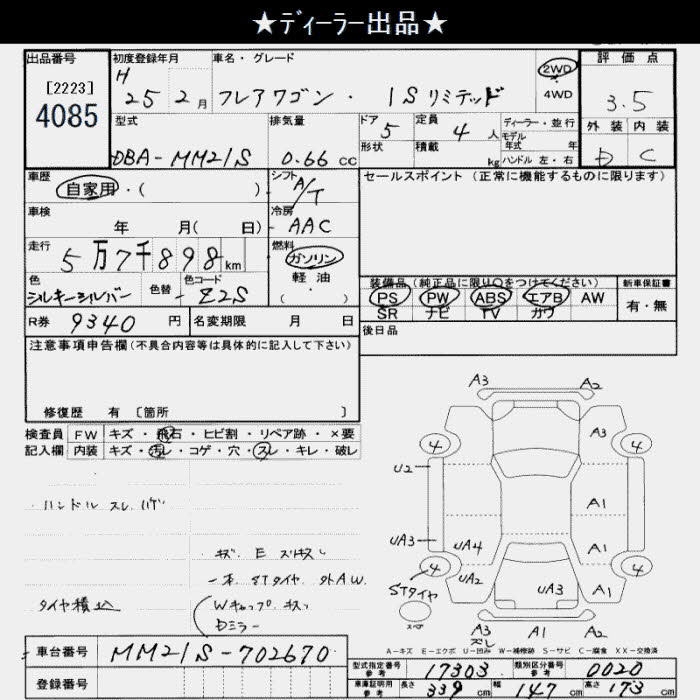 ★ディーラー出品★
出品番号
[2223]
4085
初度登録年月
H 25 2月
車名・グレード
フレアワゴン・ISリミテッド
2WD
4WD
評価点
3.5
外装 内装
D C
型式
DBA-MM21S
排気量
0.66 cc
ドア 5
形状
定員 4人
積載 kg
ディーラー・並行
モデル年式 年
ハンドル 左・右
車歴
自家用・( )
シフト A/T
セールスポイント(正常に機能するものに限ります)
車検 年 月( 日)
冷房 AAC
走行 5万7千898 km
燃料 ガソリン
軽油
( )
色 シルキーシルバー
色替 -
色コード Z2S
装備品(純正品に限り○をつけてください)
PS PW ABS エアB AW
SR ナビ TV カワ
新車保証書
有・無
R券 9340円
名変期限 月 日
後日品
注意事項申告欄(不具合内容等は具体的に記入して下さい)
修復歴 有〔箇所 〕
検査員 FW キズ・飛石・ヒビ割・リペア跡・×要
記入欄 内装 キズ・汚レ・コゲ・穴・スレ・キレ・破レ
ハンドル スレ ハゲ
キズ E
一本 STタイヤ 外AW
タイヤ積込
Wキャップ キズ
Dミラー
A3 A2
4 A3 4
U2
A1
UA3 UA4 A1
4 UA2 UA3 A1 4
STタイヤ
A3 A1 A2
スレ
A-キズ E-エクボ U-凹み W-補修跡 S-サビ C-腐食 XX-交換済
車台番号 MM21S-702670
登録番号
型式指定番号 参考 17303
類別区分番号 参考 0020
車庫証明用 参考 長さ 339cm 幅 147cm 高さ 173cm